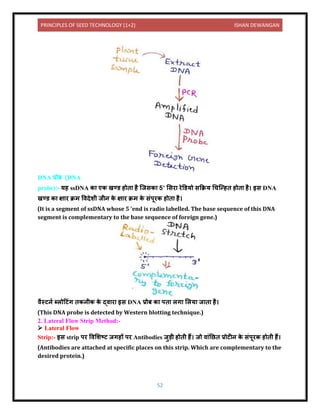 PRINCIPLES OF SEED TECHNOLOGY (1+2) ISHAN DEWANGAN
plant tissue Sample
Extract DNA
Amplified DNA
DNA Probe
Foreign Gene Detection
DNA प्रोब (DNA
probe):- यह ssDNA का एक खण्ड होता है जिसका 5' सिरा रेडियो सक्रिय चिन्हित होता है। इस DNA
खण्ड का क्षार क्रम विदेशी जीन के क्षार क्रम के संपूरक होता है।
(It is a segment of ssDNA whose 5 'end is radio labelled. The base sequence of this DNA
segment is complementary to the base sequence of foreign gene.)
Radio-Labelled
DNA Stretch
Complementary to Foreign DNA
वैस्टर्न ब्लोटिंग तकनीक के द्वारा इस DNA प्रोब का पता लगा लिया जाता है।
(This DNA probe is detected by Western blotting technique.)
2. Lateral Flow Strip Method:-
➢ Lateral Flow
Strip:- इस strip पर विशिष्ट जगहों पर Antibodies जुड़ी होती हैं। जो वांछित प्रोटीन के संपूरक होती हैं।
(Antibodies are attached at specific places on this strip. Which are complementary to the
desired protein.)
52